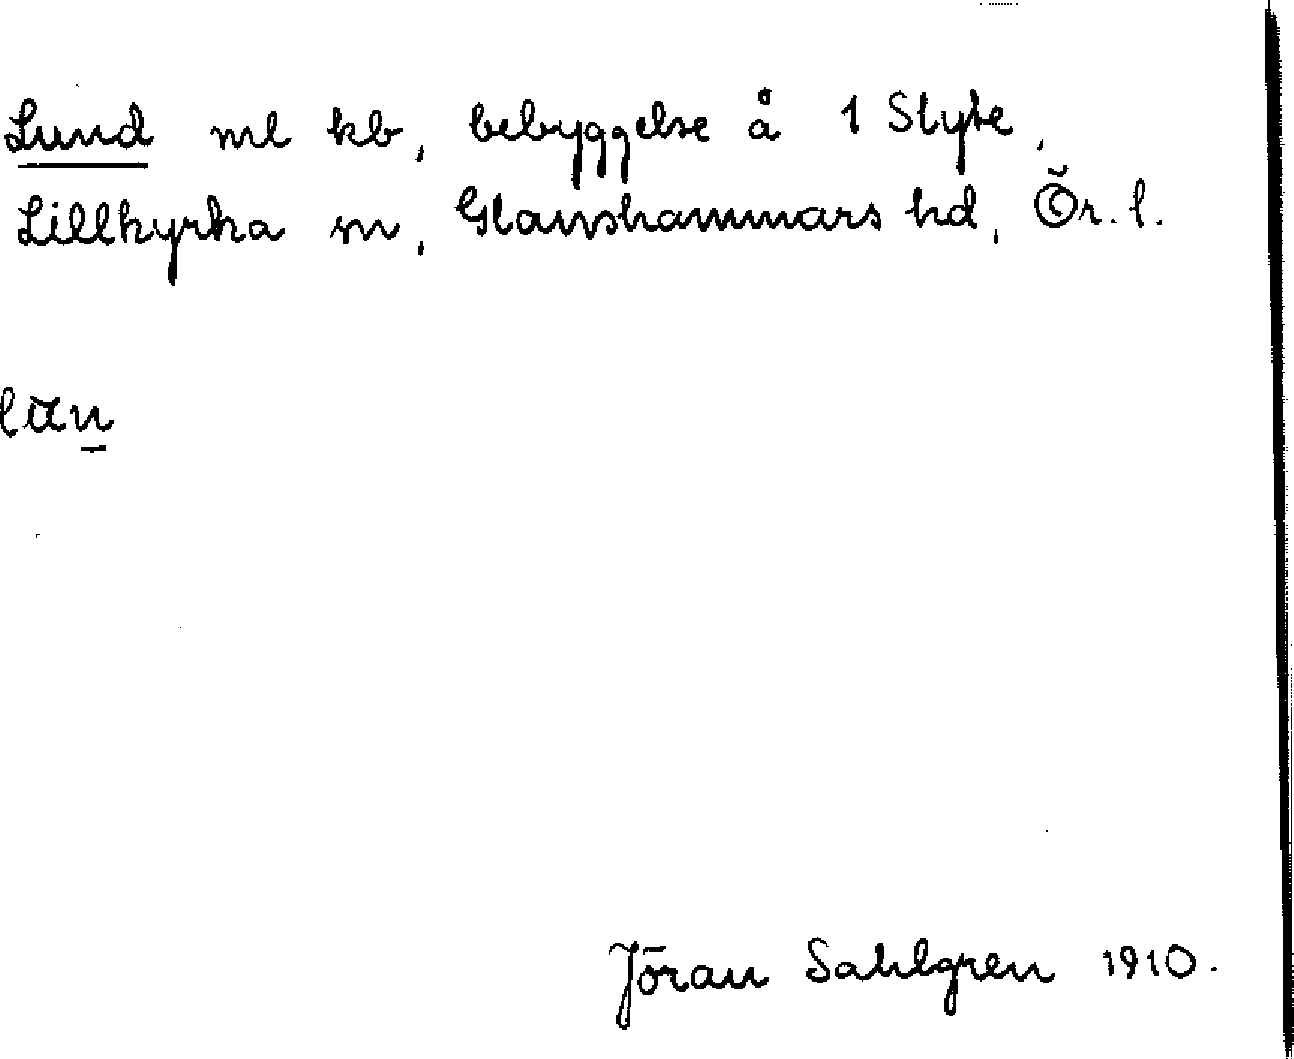 Lund ml kb, bebyggelse å 1 Styte,
Lillkyrka sn, Glanshammars hd, Ör. l.
lan
Jöran Sahlgren 1910.